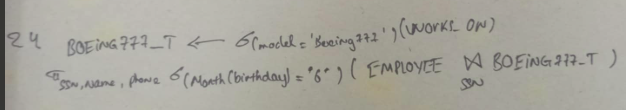 24 BOEING777_T ← σ(model = 'Boeing777')(WORKS_ON)
π ssn, name, phone σ(Month(birthday) = "6")(EMPLOYEE ⋈ BOEING777_T)
ssn